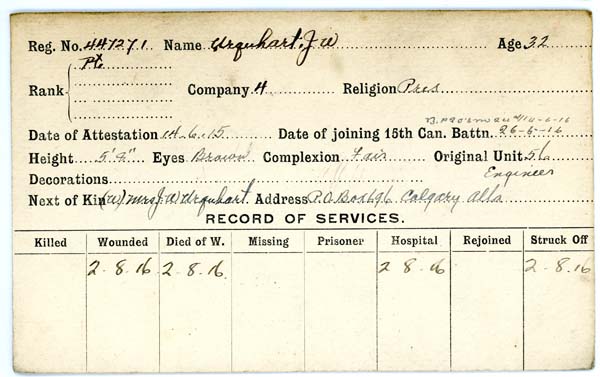 Reg. No. 447271 Name Urquhart, J W Age 32
Rank Pte Company 4 Religion Pres
10-6-16
Date of Attestation 14.6.15 Date of joining 15th Can. Battn. 26-5-16
Height 5'9" Eyes Brown Complexion Fair Original Unit 56
Decorations Engineer
Next of Kin (W) Mrs J. W Urquhart Address P.O Box 696 Calgary Alta
RECORD OF SERVICES.
Killed Wounded Died of W. Missing Prisoner Hospital Rejoined Struck Off
2-8-16 2-8-16. 2 8 16 2-8-16